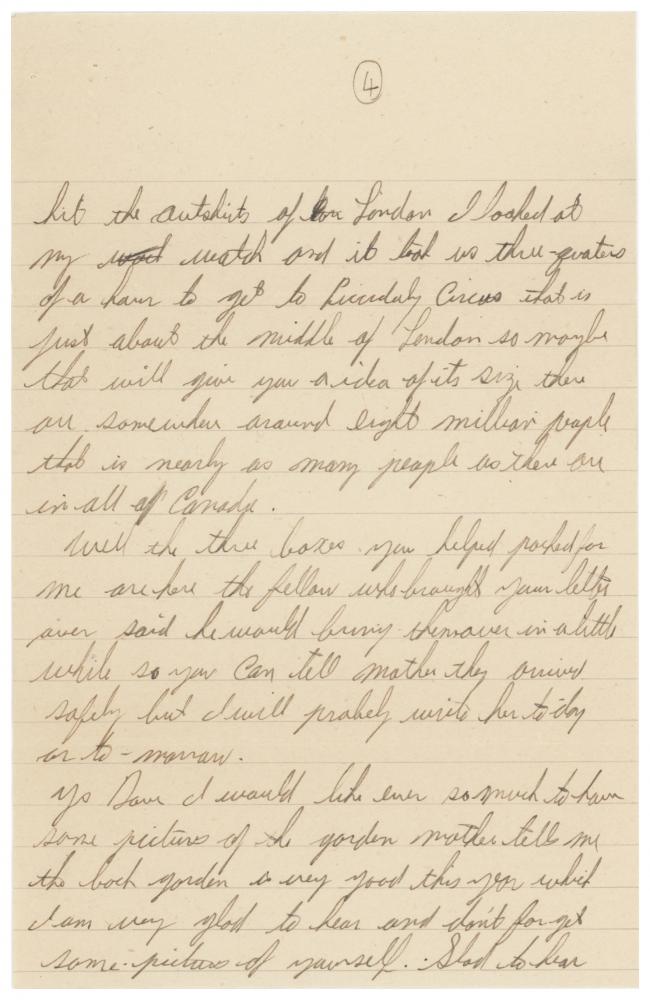 4
hit the outskirts of London I looked at
my watch and it took us three-quaters
of a hour to get to Piccidaly Circus that is
just about the middle of London so maybe
that will give you a idea of its size there
are somewhere around eight million people
that is nearly as many people as there are
in all of Canada.
Well the three boxes you helped packed for
me are here the fellow who brought your letter
over said he would bring them over in a little
while so you can tell mother they arrived
safely but I will probely write her to-day
or to-morrow.
Yes Dave I would like ever so much to have
some pictures of the garden mother tells me
the back garden is very good this year which
I am very glad to hear and don't forget
some pictures of yourself. Glad to hear